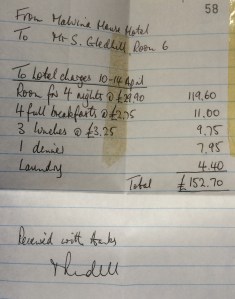 58
From Malvinia House Hotel
To Mr S. Gledhill, Room 6
To hotel charges 10-14 April
Room for 4 nights @ £29.90 119.60
4 full breakfasts @ £2.75 11.00
3 lunches @ £3.25 9.75
1 dinner 7.95
Laundry 4.40
Total £152.70
Received with thanks